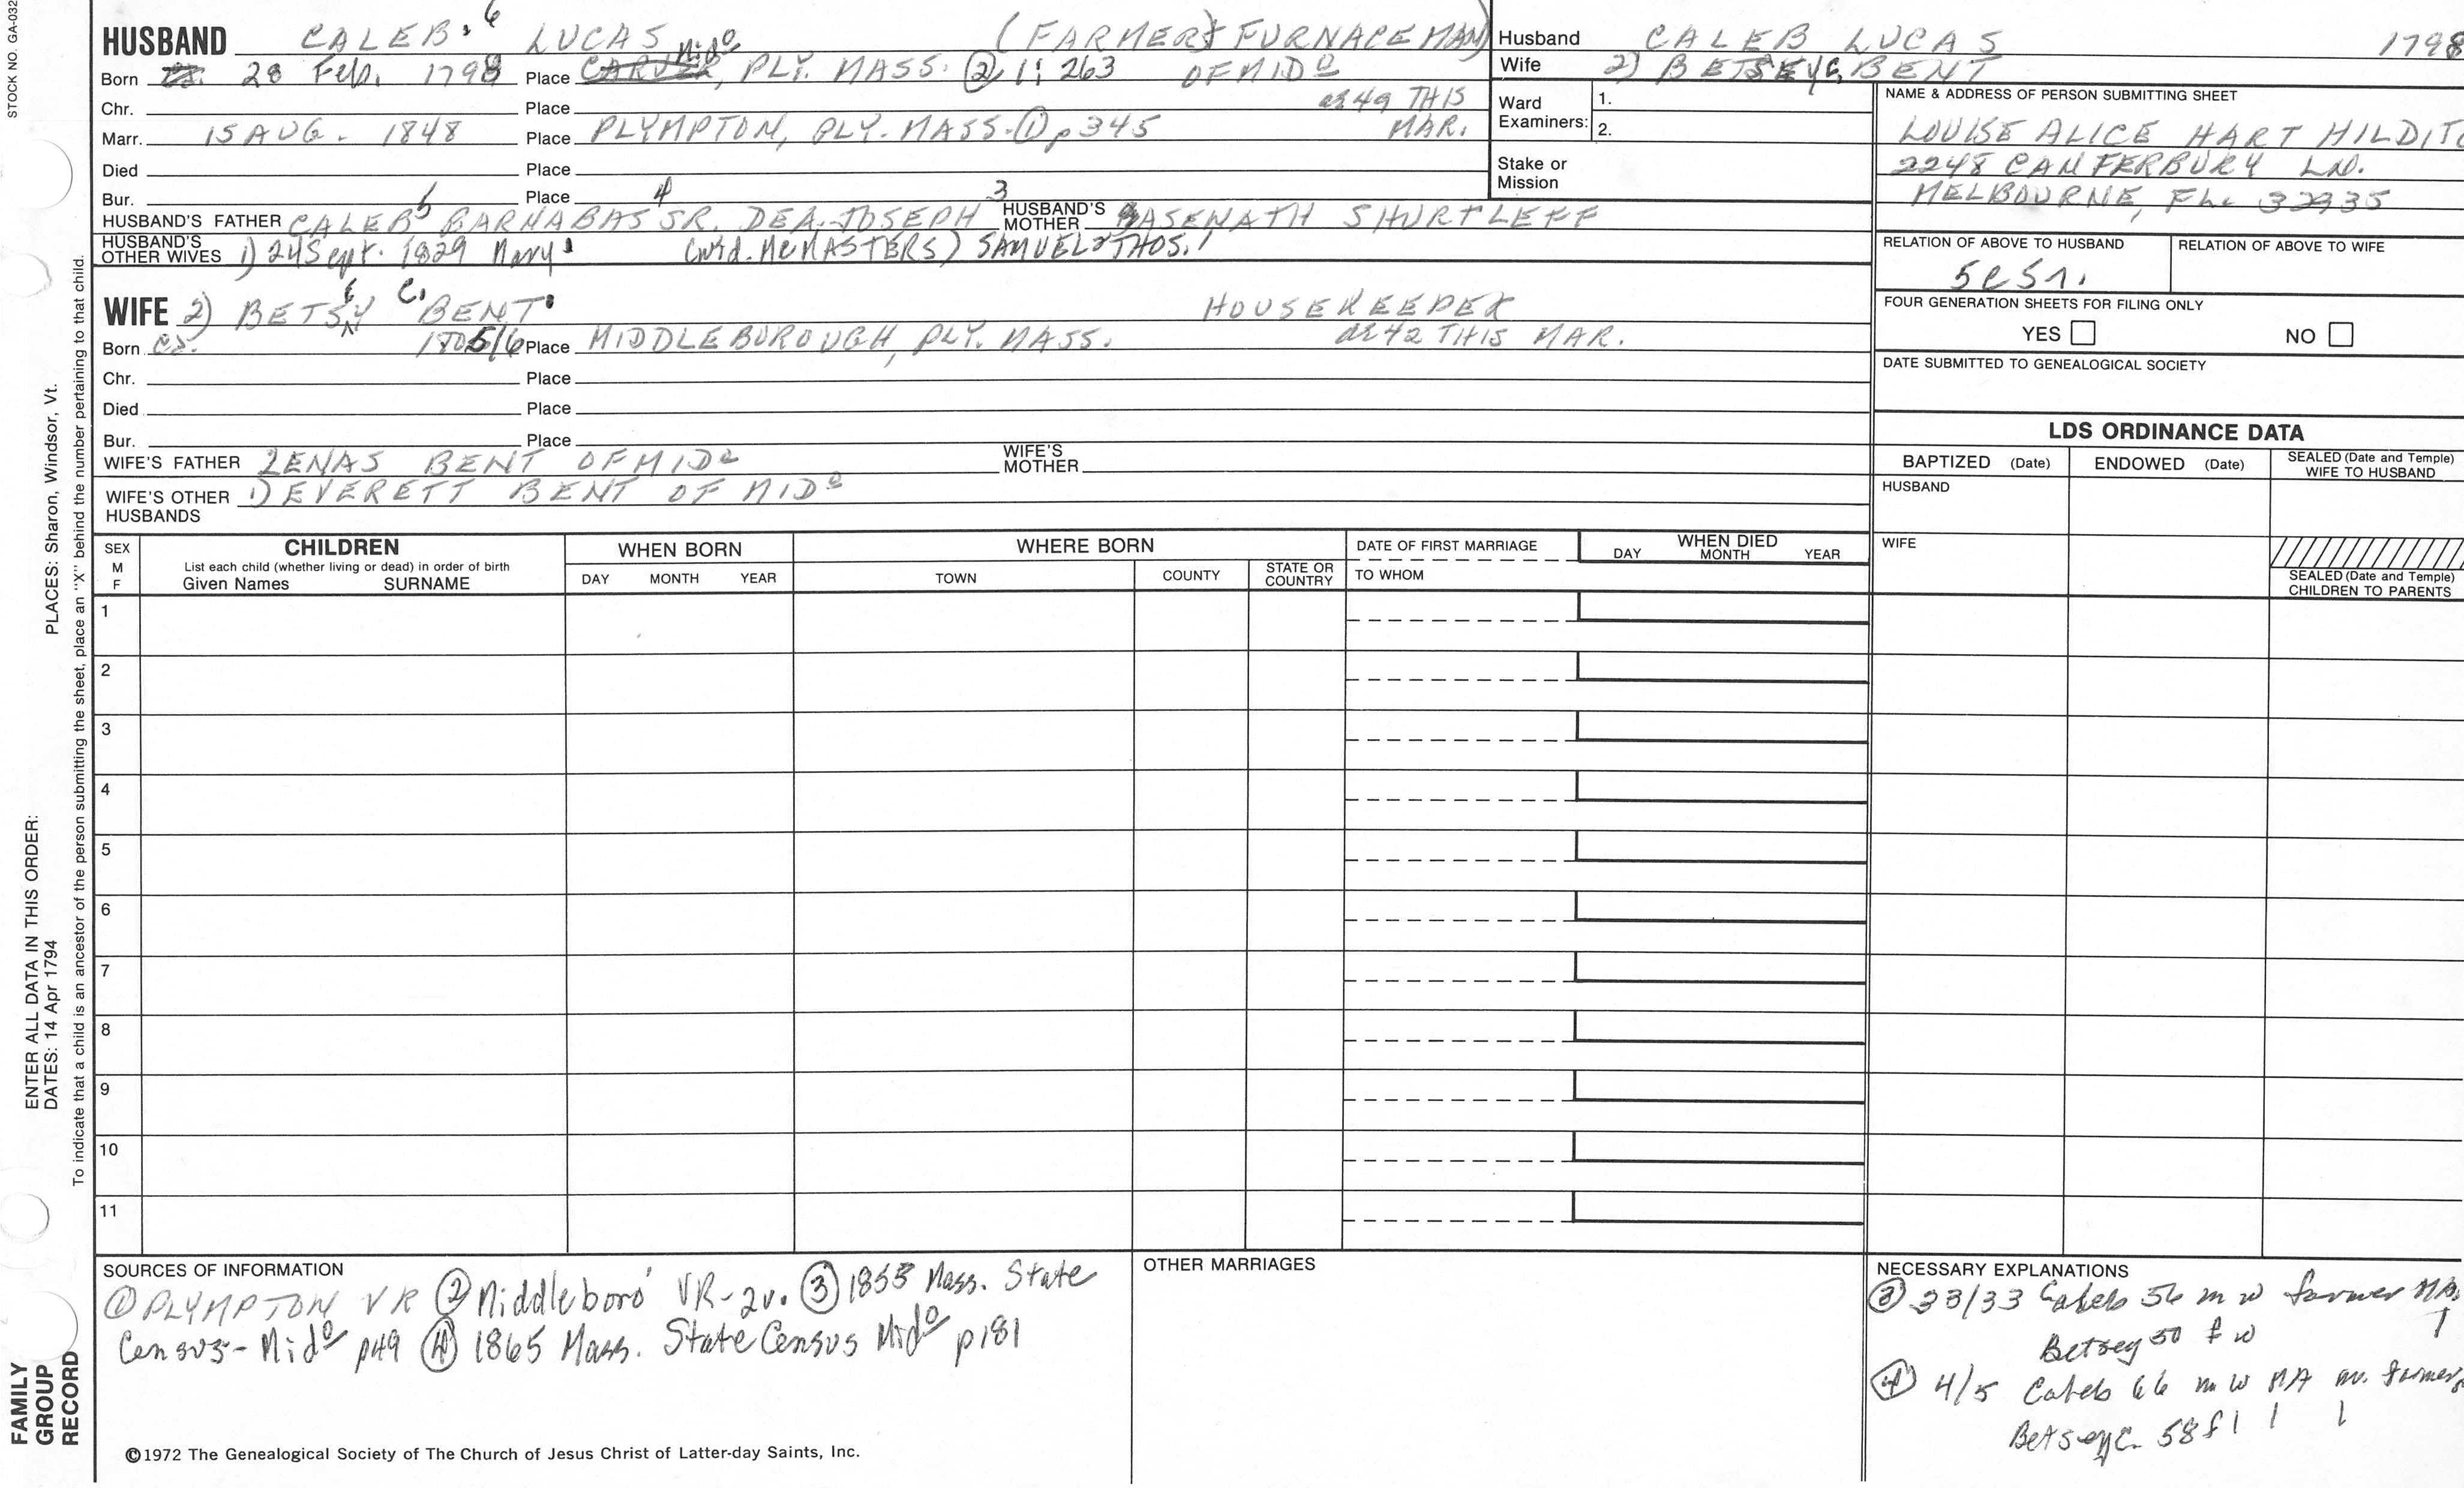 STOCK NO. GA-032
HUSBAND CALEB 6 LUCAS (FARMER & FURNACE MAN)
Born 28 Feb. 1798 Place CARVER Mido, PLY. MASS. ② 1: 263 OF MIDo
Chr. Place ae 49 THIS
Marr. 15 AUG. 1848 Place PLYMPTON, PLY. MASS. ① p 345 MAR.
Died Place
Bur. Place
HUSBAND'S FATHER CALEB 5 BARNABAS 4 SR. DEA. JOSEPH 3 HUSBAND'S MOTHER ASENATH SHURTLEFF
HUSBAND'S OTHER WIVES 1) 24 Sept. 1829 Mary (wid. McMASTERS) SAMUEL 2 THOS. 1
WIFE 2) BETSEY C. BENT HOUSEKEEPER
Born ca. 1805/6 Place MIDDLEBOROUGH, PLY. MASS. ae 42 THIS MAR.
Chr. Place
Died Place
Bur. Place
WIFE'S FATHER ZENAS BENT OF MIDo WIFE'S MOTHER
WIFE'S OTHER HUSBANDS 1) EVERETT BENT OF MIDo
Husband CALEB LUCAS 1798
Wife 2) BETSEY C. BENT
Ward Examiners: 1.
2.
Stake or Mission
NAME & ADDRESS OF PERSON SUBMITTING SHEET
LOUISE ALICE HART HILDITC
2248 CANTERBURY LN.
MELBOURNE, FL. 32935
RELATION OF ABOVE TO HUSBAND RELATION OF ABOVE TO WIFE
5C5r.
FOUR GENERATION SHEETS FOR FILING ONLY
YES NO
DATE SUBMITTED TO GENEALOGICAL SOCIETY
LDS ORDINANCE DATA
BAPTIZED (Date) ENDOWED (Date) SEALED (Date and Temple) WIFE TO HUSBAND
HUSBAND
WIFE
SEALED (Date and Temple) CHILDREN TO PARENTS
SEX M F
CHILDREN
List each child (whether living or dead) in order of birth
Given Names SURNAME
WHEN BORN
DAY MONTH YEAR
WHERE BORN
TOWN COUNTY STATE OR COUNTRY
DATE OF FIRST MARRIAGE
TO WHOM
WHEN DIED
DAY MONTH YEAR
1
2
3
4
5
6
7
8
9
10
11
SOURCES OF INFORMATION
① PLYMPTON VR ② Middleboro' VR-2v. ③ 1855 Mass. State
Census - Mido p49 ④ 1865 Mass. State Census Mido p181
OTHER MARRIAGES
NECESSARY EXPLANATIONS
③ 33/33 Caleb 56 m w farmer MA.
Betsey 50 f w
④ 4/5 Caleb 66 m w MA m. farmer
Betsey C. 58 f
©1972 The Genealogical Society of The Church of Jesus Christ of Latter-day Saints, Inc.
FAMILY GROUP RECORD
ENTER ALL DATA IN THIS ORDER:
DATES: 14 Apr 1794
PLACES: Sharon, Windsor, Vt.
To indicate that a child is an ancestor of the person submitting the sheet, place an "X" behind the number pertaining to that child.